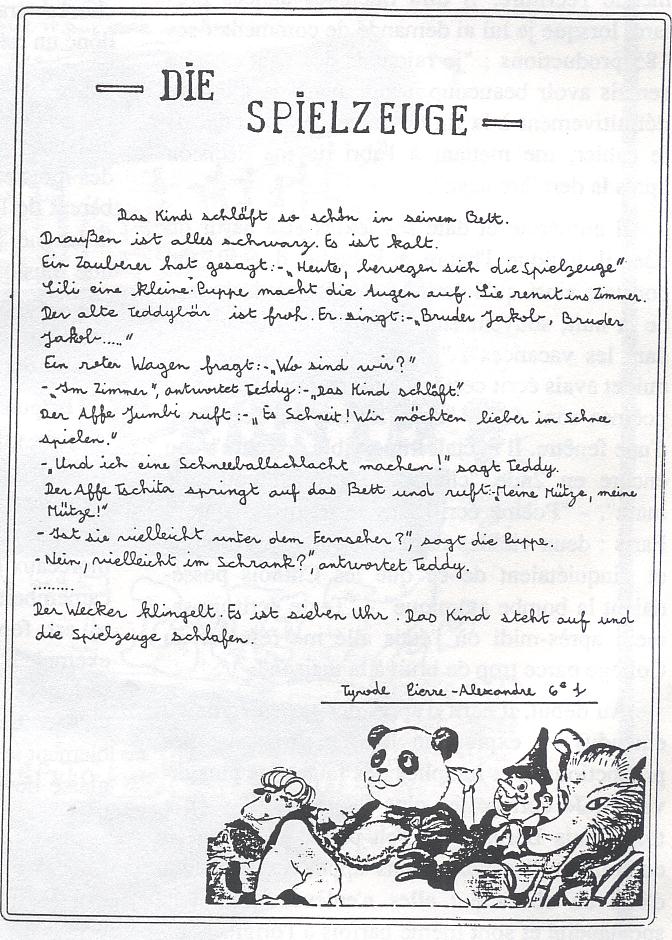 DIE
SPIELZEUGE
Das Kind schläft so schön in seinem Bett.
Draußen ist alles schwarz. Es ist kalt.
Ein Zauberer hat gesagt:-„Heute, bewegen sich die Spielzeuge"
Lili eine kleine Puppe macht die Augen auf. Sie rennt ins Zimmer.
Der alte Teddybär ist froh. Er singt:-„Bruder Jakob, Bruder
Jakob....."
Ein roter Wagen fragt:-„Wo sind wir?"
-„Im Zimmer", antwortet Teddy:-„Das Kind schläft".
Der Affe Jumbi ruft:-„Es Schneit! Wir möchten lieber im Schnee
spielen."
-„Und ich eine Schneeballschlacht machen!" sagt Teddy.
Der Affe Tschita springt auf das Bett und ruft:-Meine Mütze, meine
Mütze!"
-„Ist sie vielleicht unter dem Fernseher?", sagt die Puppe.
-Nein, vielleicht im Schrank?", antwortet Teddy.
.......
Der Wecker klingelt. Es ist sieben Uhr. Das Kind steht auf und
die Spielzeuge schlafen.
Tyrode Pierre-Alexandre 6e 1